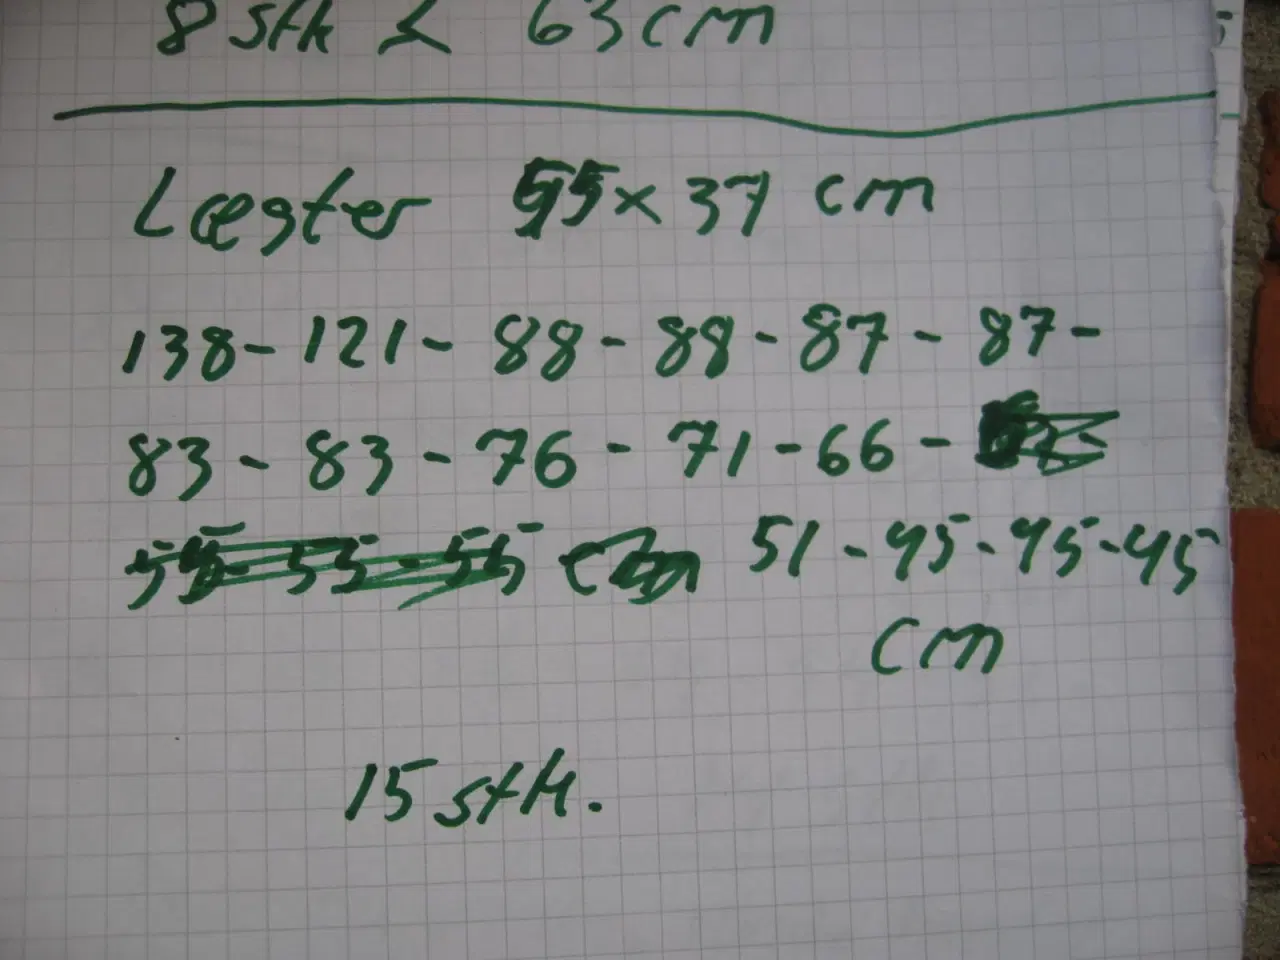 8 stk < 63 cm
Lægter 55 x 37 cm
138 - 121 - 88 - 88 - 87 - 87 -
83 - 83 - 76 - 71 - 66 -
55 - 55 - 55 cm 51 - 45 - 45 - 45
cm
15 stk.